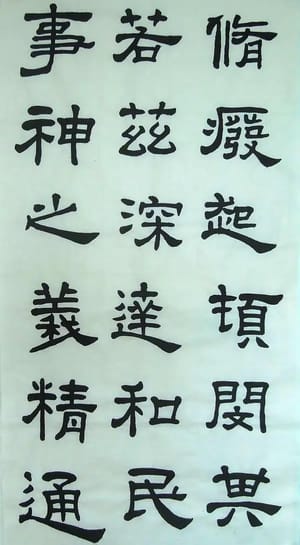 脩癈起頓閔其
若茲深達和民
事神之義精通